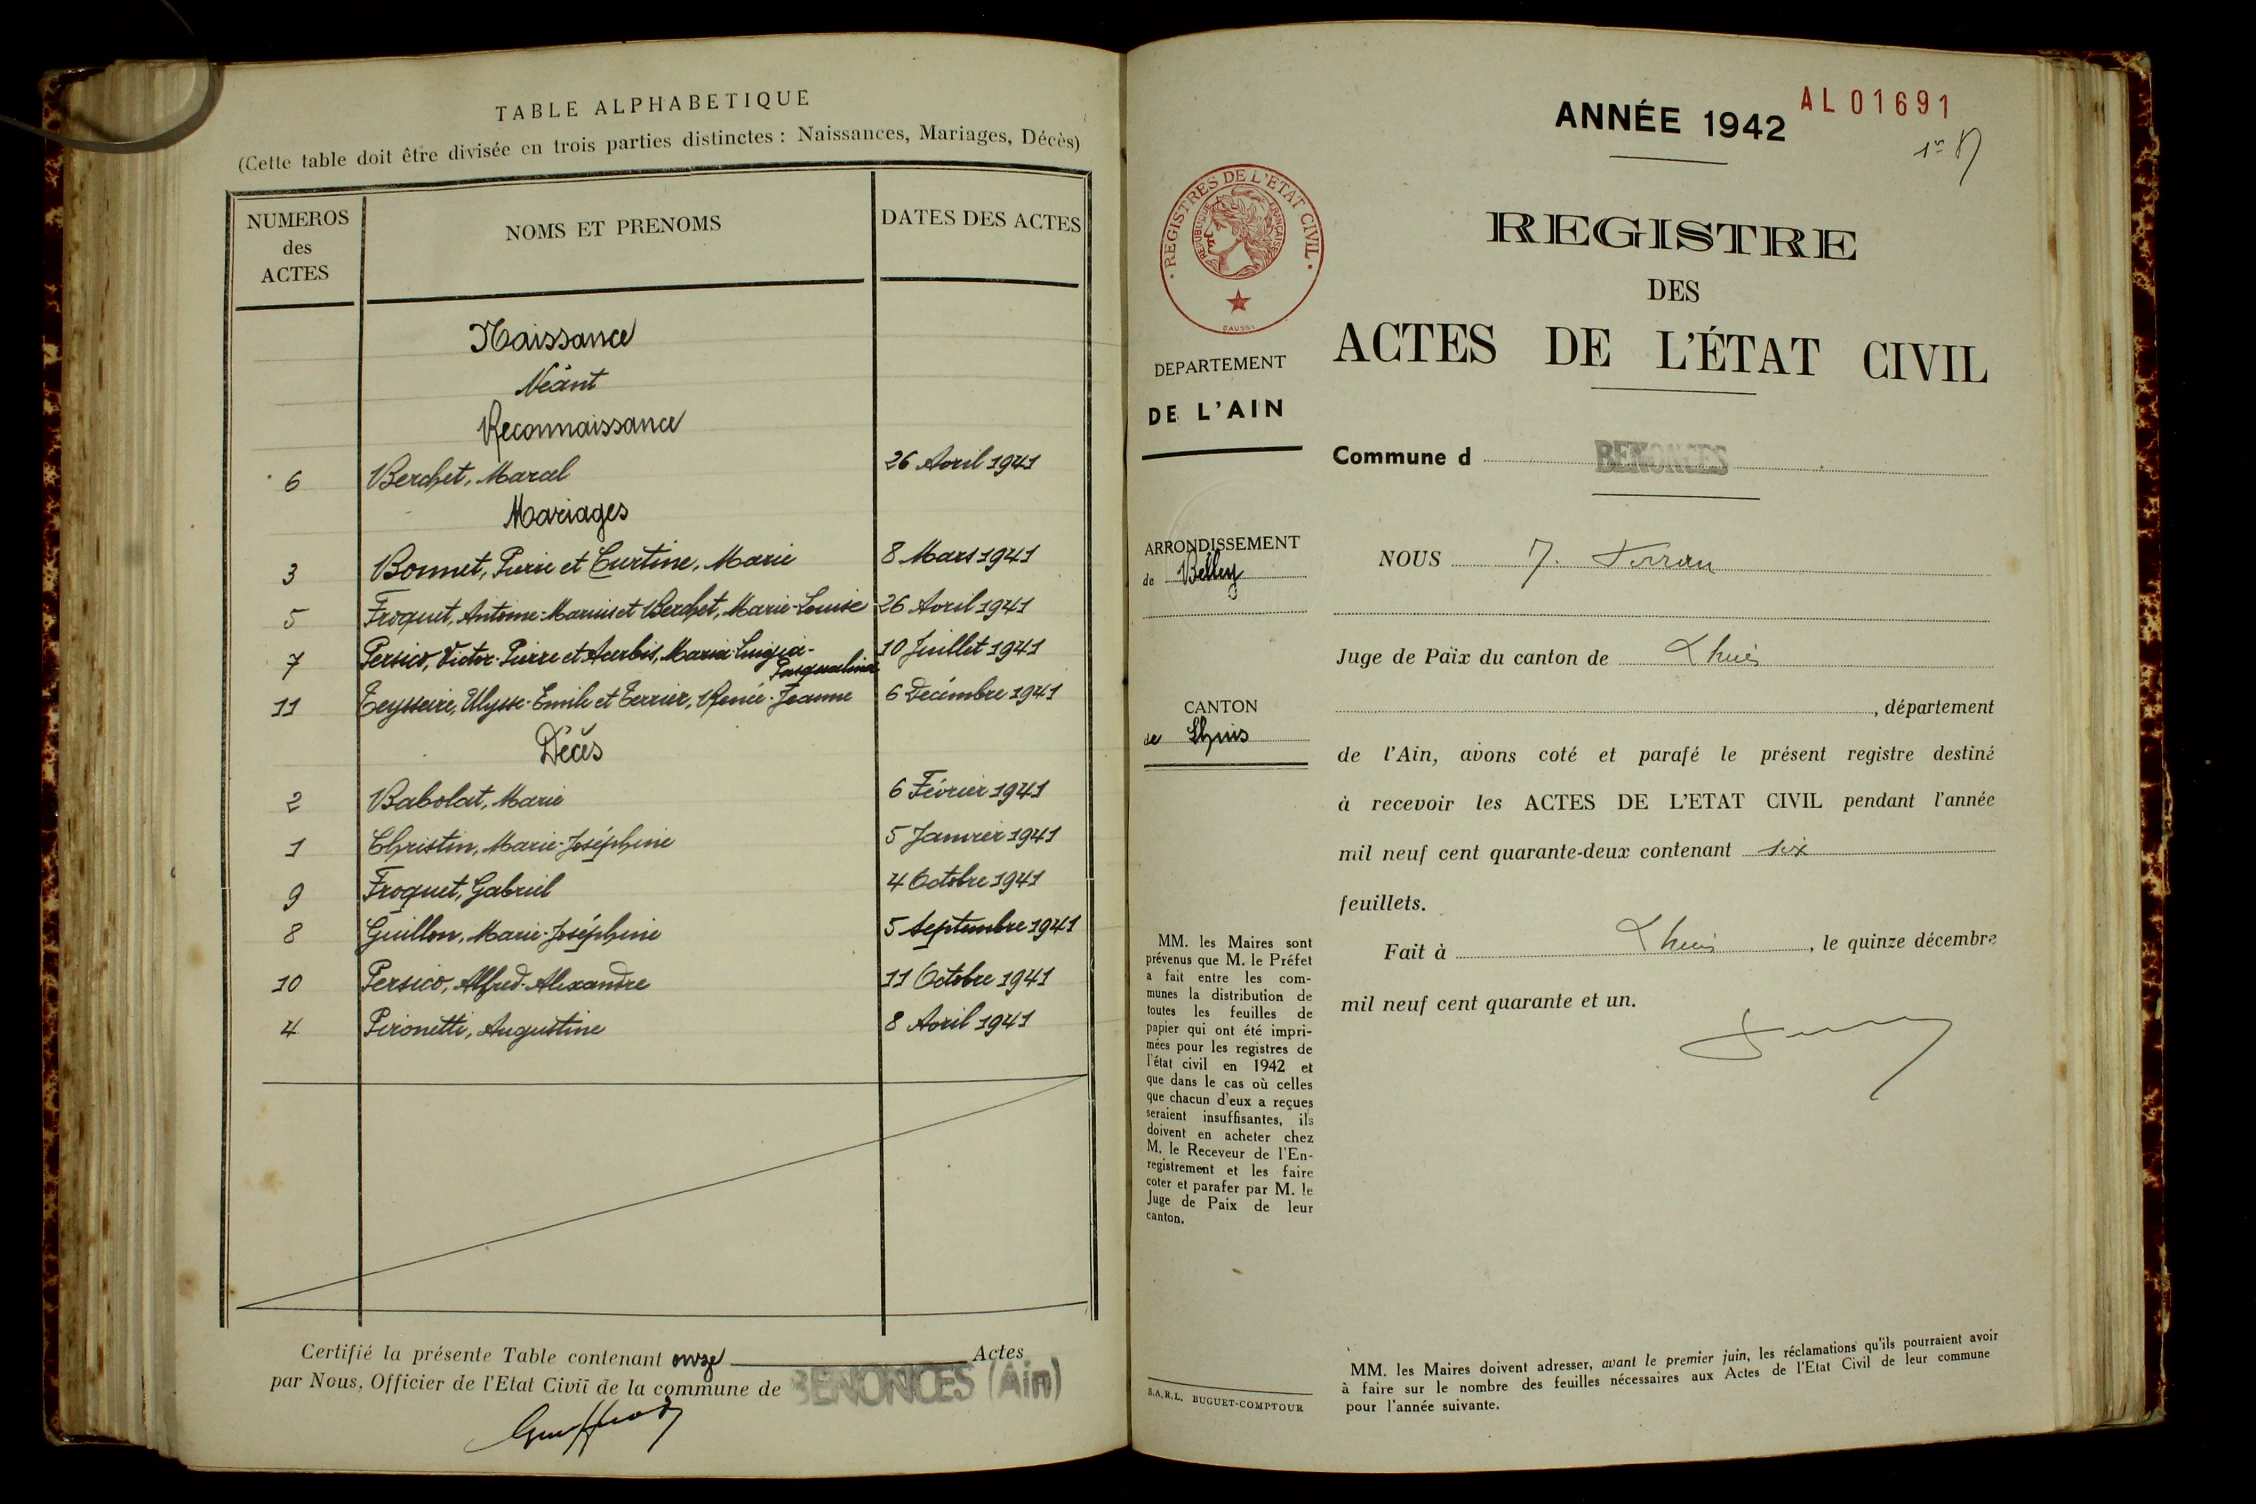 TABLE ALPHABETIQUE
(Cette table doit être divisée en trois parties distinctes : Naissances, Mariages, Décès)
NUMEROS des ACTES NOMS ET PRENOMS DATES DES ACTES
Naissance
Néant
Reconnaissance
6 Berchet, Marcel 26 Avril 1941
Mariages
3 Bonnet, Pierre et Curtine, Marie 8 Mars 1941
5 Froquet, Antoine-Marius et Berchet, Marie-Louise 26 Avril 1941
7 Persico, Victor-Pierre et Acerbis, Maria-Luigia- 10 Juillet 1941
Pasqualina
11 Teysseire, Ulysse-Emile et Terrier, Renée-Jeanne 6 Décembre 1941
Décés
2 Babolat, Marie 6 Février 1941
1 Christin, Marie-Joséphine 5 Janvier 1941
9 Froquet, Gabriel 4 Octobre 1941
8 Guillon, Marie-Joséphine 5 Septembre 1941
10 Persico, Alfred-Alexandre 11 Octobre 1941
4 Peronetti, Augustine 8 Avril 1941
Certifié la présente Table contenant onze Actes
par Nous, Officier de l'Etat Civil de la commune de BENONCES (Ain)
ANNÉE 1942
AL 01691
1er
REGISTRES DE L'ETAT CIVIL
REPUBLIQUE FRANÇAISE
REGISTRE
DES
ACTES DE L'ÉTAT CIVIL
DEPARTEMENT
DE L'AIN
Commune d BENONCES
ARRONDISSEMENT
de Belley
CANTON
de Lhuis
NOUS
Juge de Paix du canton de Lhuis
, département
de l'Ain, avons coté et parafé le présent registre destiné
à recevoir les ACTES DE L'ETAT CIVIL pendant l'année
mil neuf cent quarante-deux contenant six
feuillets.
Fait à Lhuis, le quinze décembre
mil neuf cent quarante et un.
MM. les Maires sont
prévenus que M. le Préfet
a fait entre les com-
munes la distribution de
toutes les feuilles de
papier qui ont été impri-
mées pour les registres de
l'état civil en 1942 et
que dans le cas où celles
que chacun d'eux a reçues
seraient insuffisantes, ils
doivent en acheter chez
M. le Receveur de l'En-
registrement et les faire
coter et parafer par M. le
Juge de Paix de leur
canton.
S.A.R.L. BUGUET-COMPTOUR
MM. les Maires doivent adresser, avant le premier juin, les réclamations qu'ils pourraient avoir
à faire sur le nombre des feuilles nécessaires aux Actes de l'Etat Civil de leur commune
pour l'année suivante.